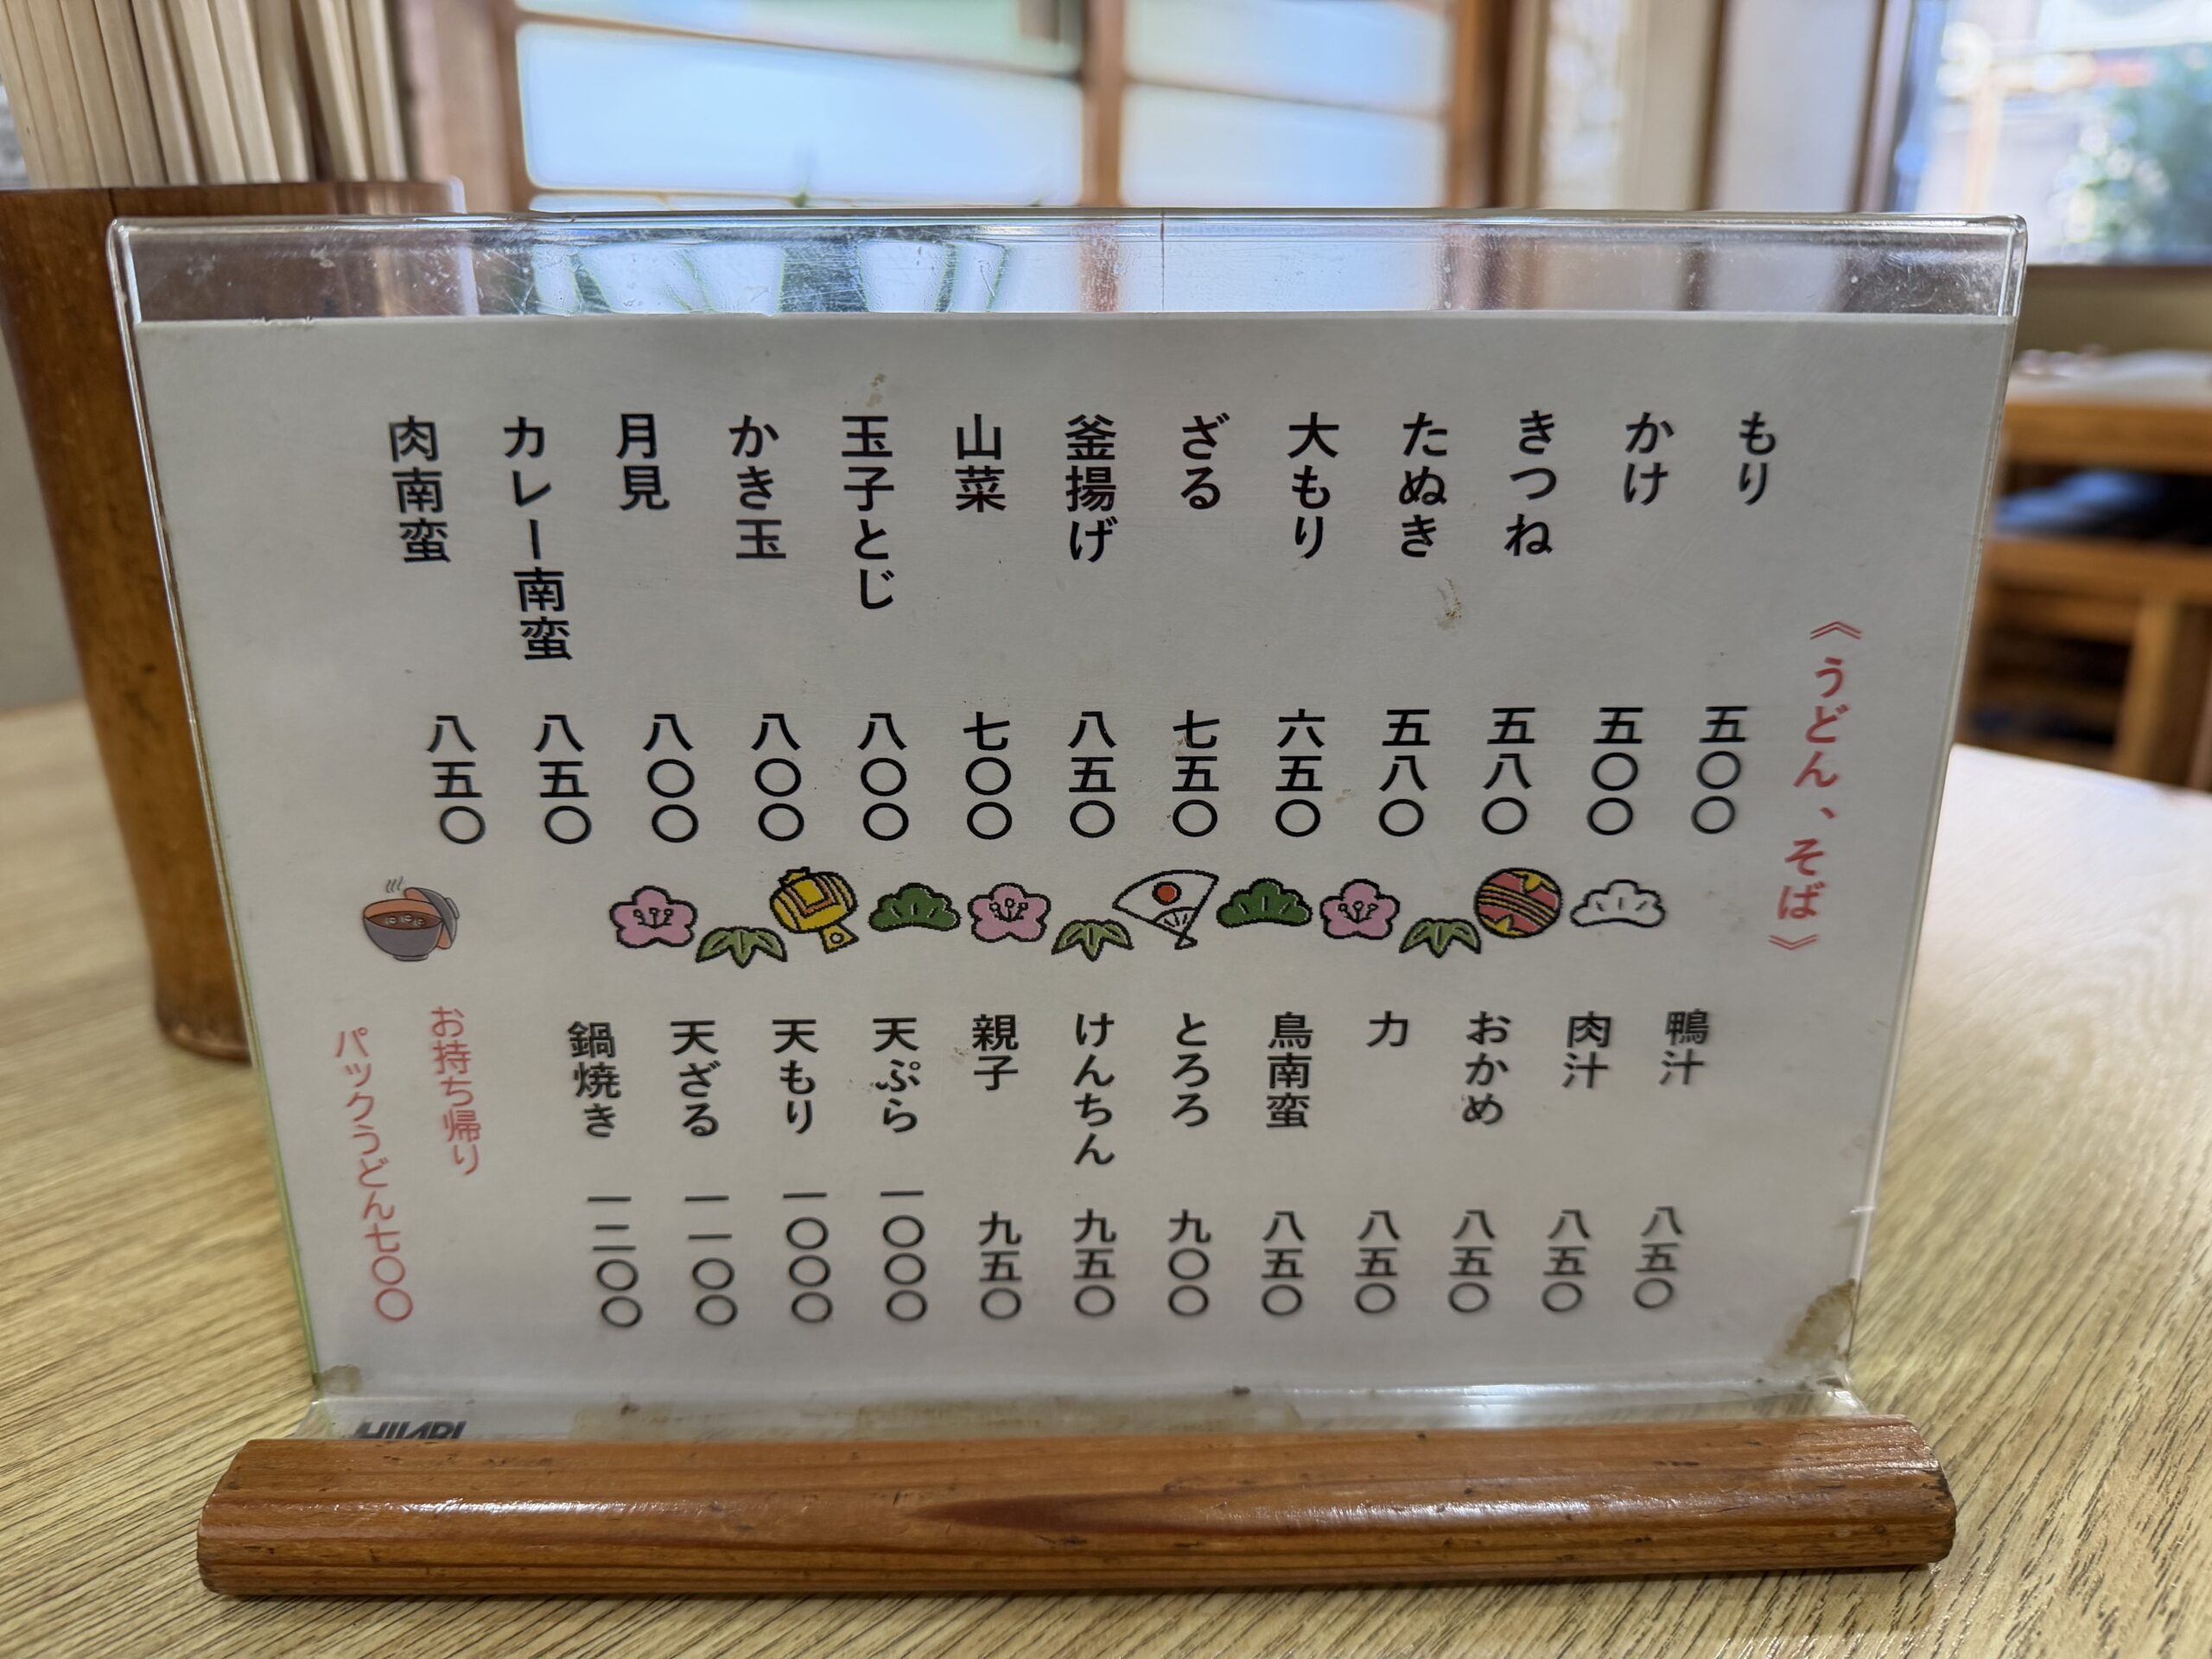 《うどん、そば》
もり 五〇〇
かけ 五〇〇
きつね 五八〇
たぬき 五八〇
大もり 六五〇
ざる 七五〇
釜揚げ 八五〇
山菜 七〇〇
玉子とじ 八〇〇
かき玉 八〇〇
月見 八〇〇
カレー南蛮 八五〇
肉南蛮 八五〇
鴨汁 八五〇
肉汁 八五〇
おかめ 八五〇
力 八五〇
鳥南蛮 八五〇
とろろ 九〇〇
けんちん 九五〇
親子 九五〇
天ぷら 一〇〇〇
天もり 一〇〇〇
天ざる 一一〇〇
鍋焼き 一二〇〇
お持ち帰り
パックうどん七〇〇